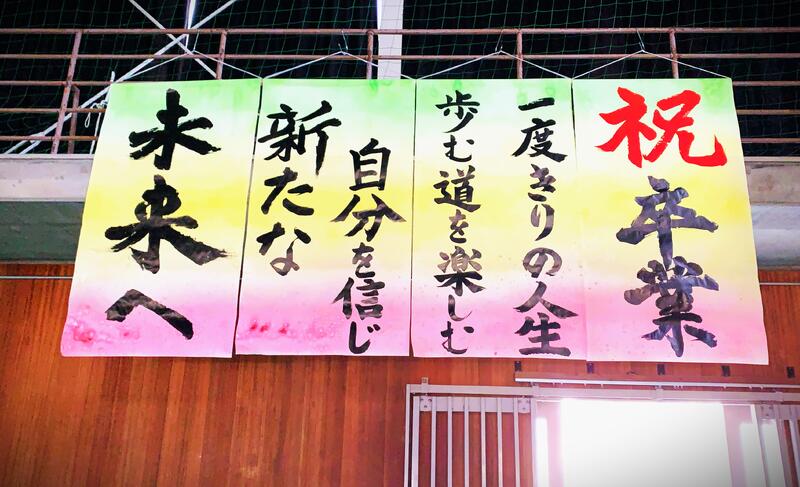 祝卒業
一度きりの人生
歩む道を楽しむ
自分を信じ
新たな
未来へ